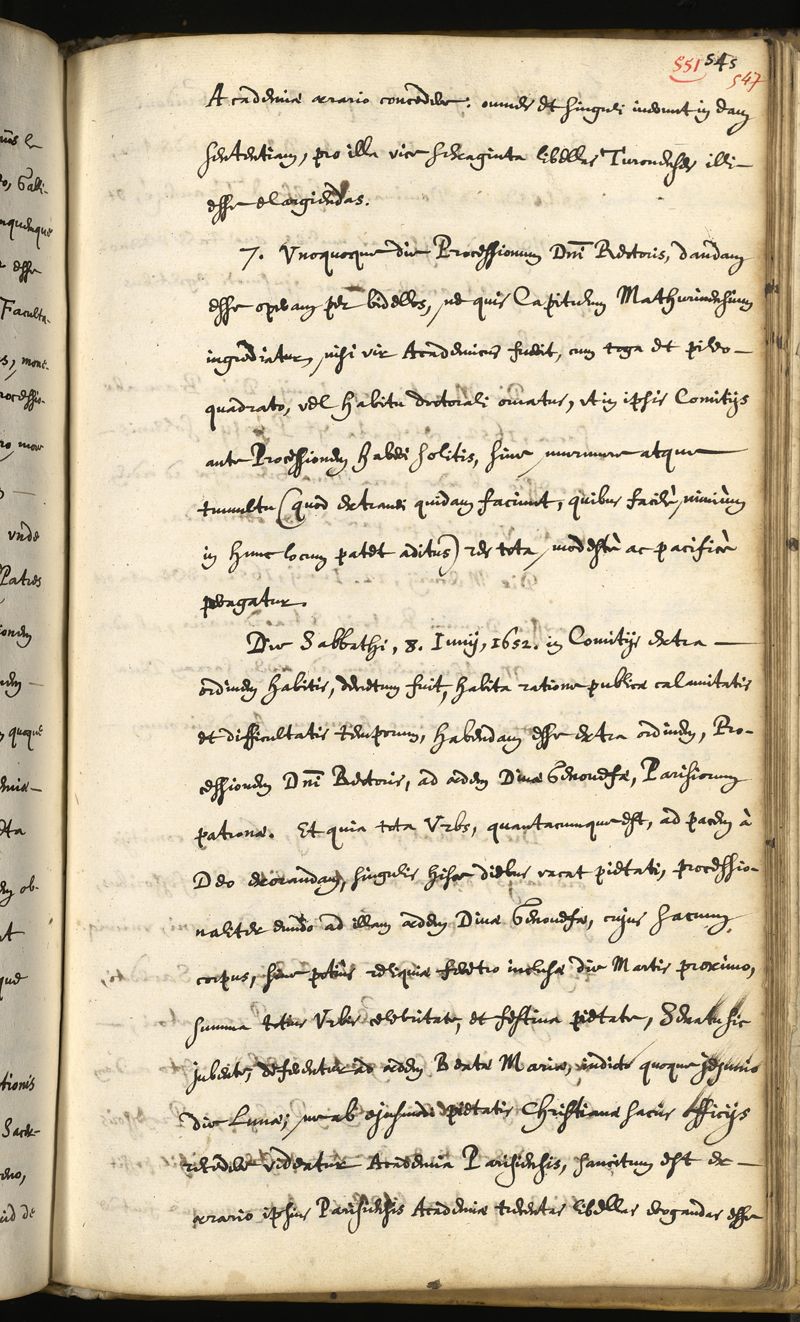 551 545
547
Academiæ ærario concedere: omnes et singuli iverunt in eam
sententiam, pro illa vice sexaginta libellas Turonenses illi
esse elargiendas.
7. Unoquoque die Processionum Dnī Rectoris, dandam
esse operam per bidellos, ne quis Capitulum Mathurinensium
ingrediatur, nisi vir Academicus fuerit, cum toga et pileo
quadrato, vel habitu doctorali ornatus, ut in ipsis Comitijs
ante Processionem haberi solitis, sine murmure atque
tumultu (quod extranei quidam faciunt, quibus facilè nimiùm
in hunc locum patet aditus) res tota modestè ac pacificè
peragatur.
Die Sabbathi, 8. Iunij, 1652. in Comitijs extra
ordinem habitis, decretum fuit, habita ratione publicæ calamitatis
et difficultatis temporum, habendam esse extra ordinem, Pro-
cessionem Dnī Rectoris, ad ædem Divæ Genovefæ, Parisiorum
patronæ. Et quia tota Urbs, quantacumque est, ad pacem à
Deo exorandam, singulis hisce diebus vacat pietati, processio-
naliter eundo ad illam ædem Divæ Genovefæ, cujus sacrum
corpus, sive potiùs reliquiæ feretro inclusæ die Martis proximo,
summa totius Urbis celebritate, et festiva pietate, Senatu sic
jubente, deferentur ad ædem Beatæ Mariæ, indicto quoque jejunio
die Lunæ; ne ab ejusmodi pietatis Christianæ sacris officijs
recedere videatur Academia Parisiensis, sancitum est ex
ærario ipsius Parisiensis Academiæ trecentas libellas erogandas esse